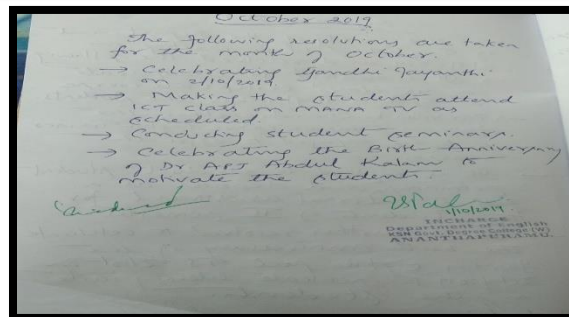 October 2019
The following resolutions are taken
for the month of October.
→ Celebrating Gandhi Jayanthi
on 2/10/2019
→ Making the students attend
ICT class on MANA TV as
scheduled.
→ Conducting student seminars.
→ Celebrating the Birth Anniversary
of Dr. APJ Abdul Kalam to
motivate the students.
1/10/2019
INCHARGE
Department of English
KSN Govt. Degree College (W)
ANANTHAPURAMU.